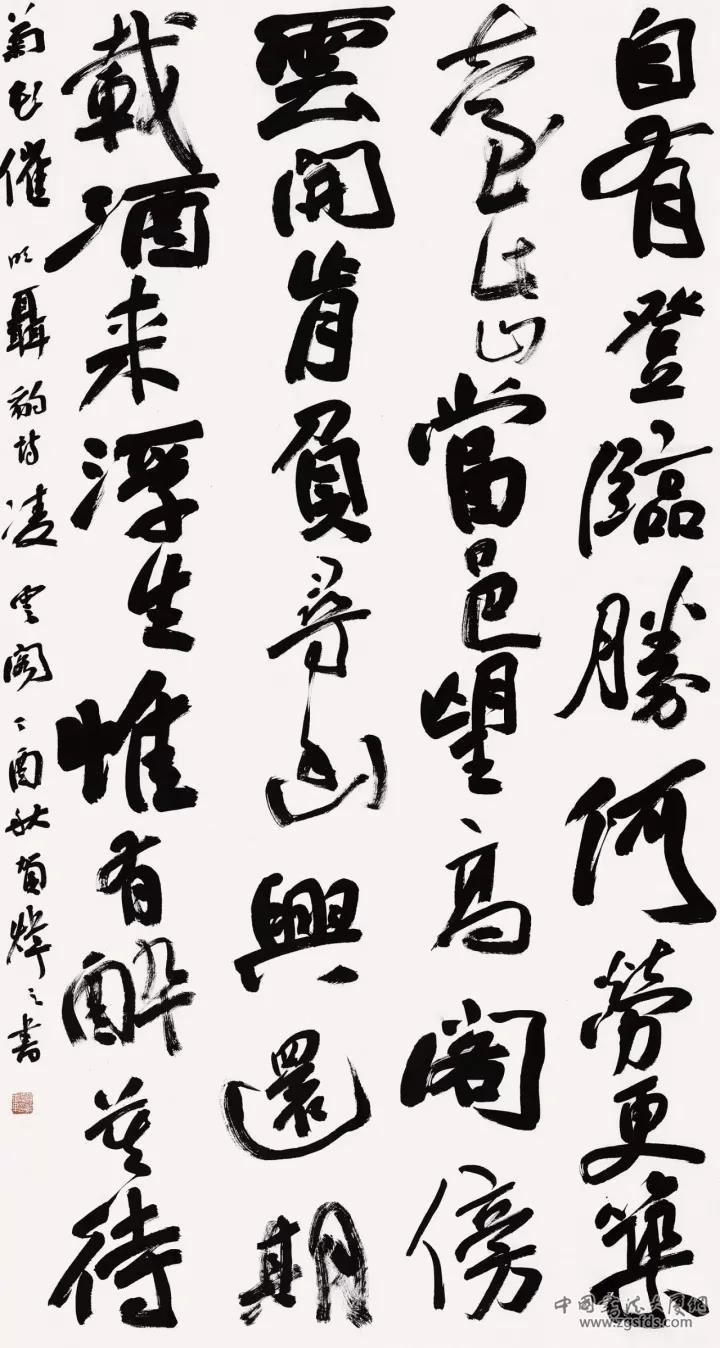 自有登臨勝何勞更築
臺此山當邑望高閣傍
雲開肯負尋山興還期
載酒来浮生惟有醉莫待
菊花催 明聶豹詩凌雲閣丁酉秋賀煒書
中国书法大厦網
www.zgsfds.com